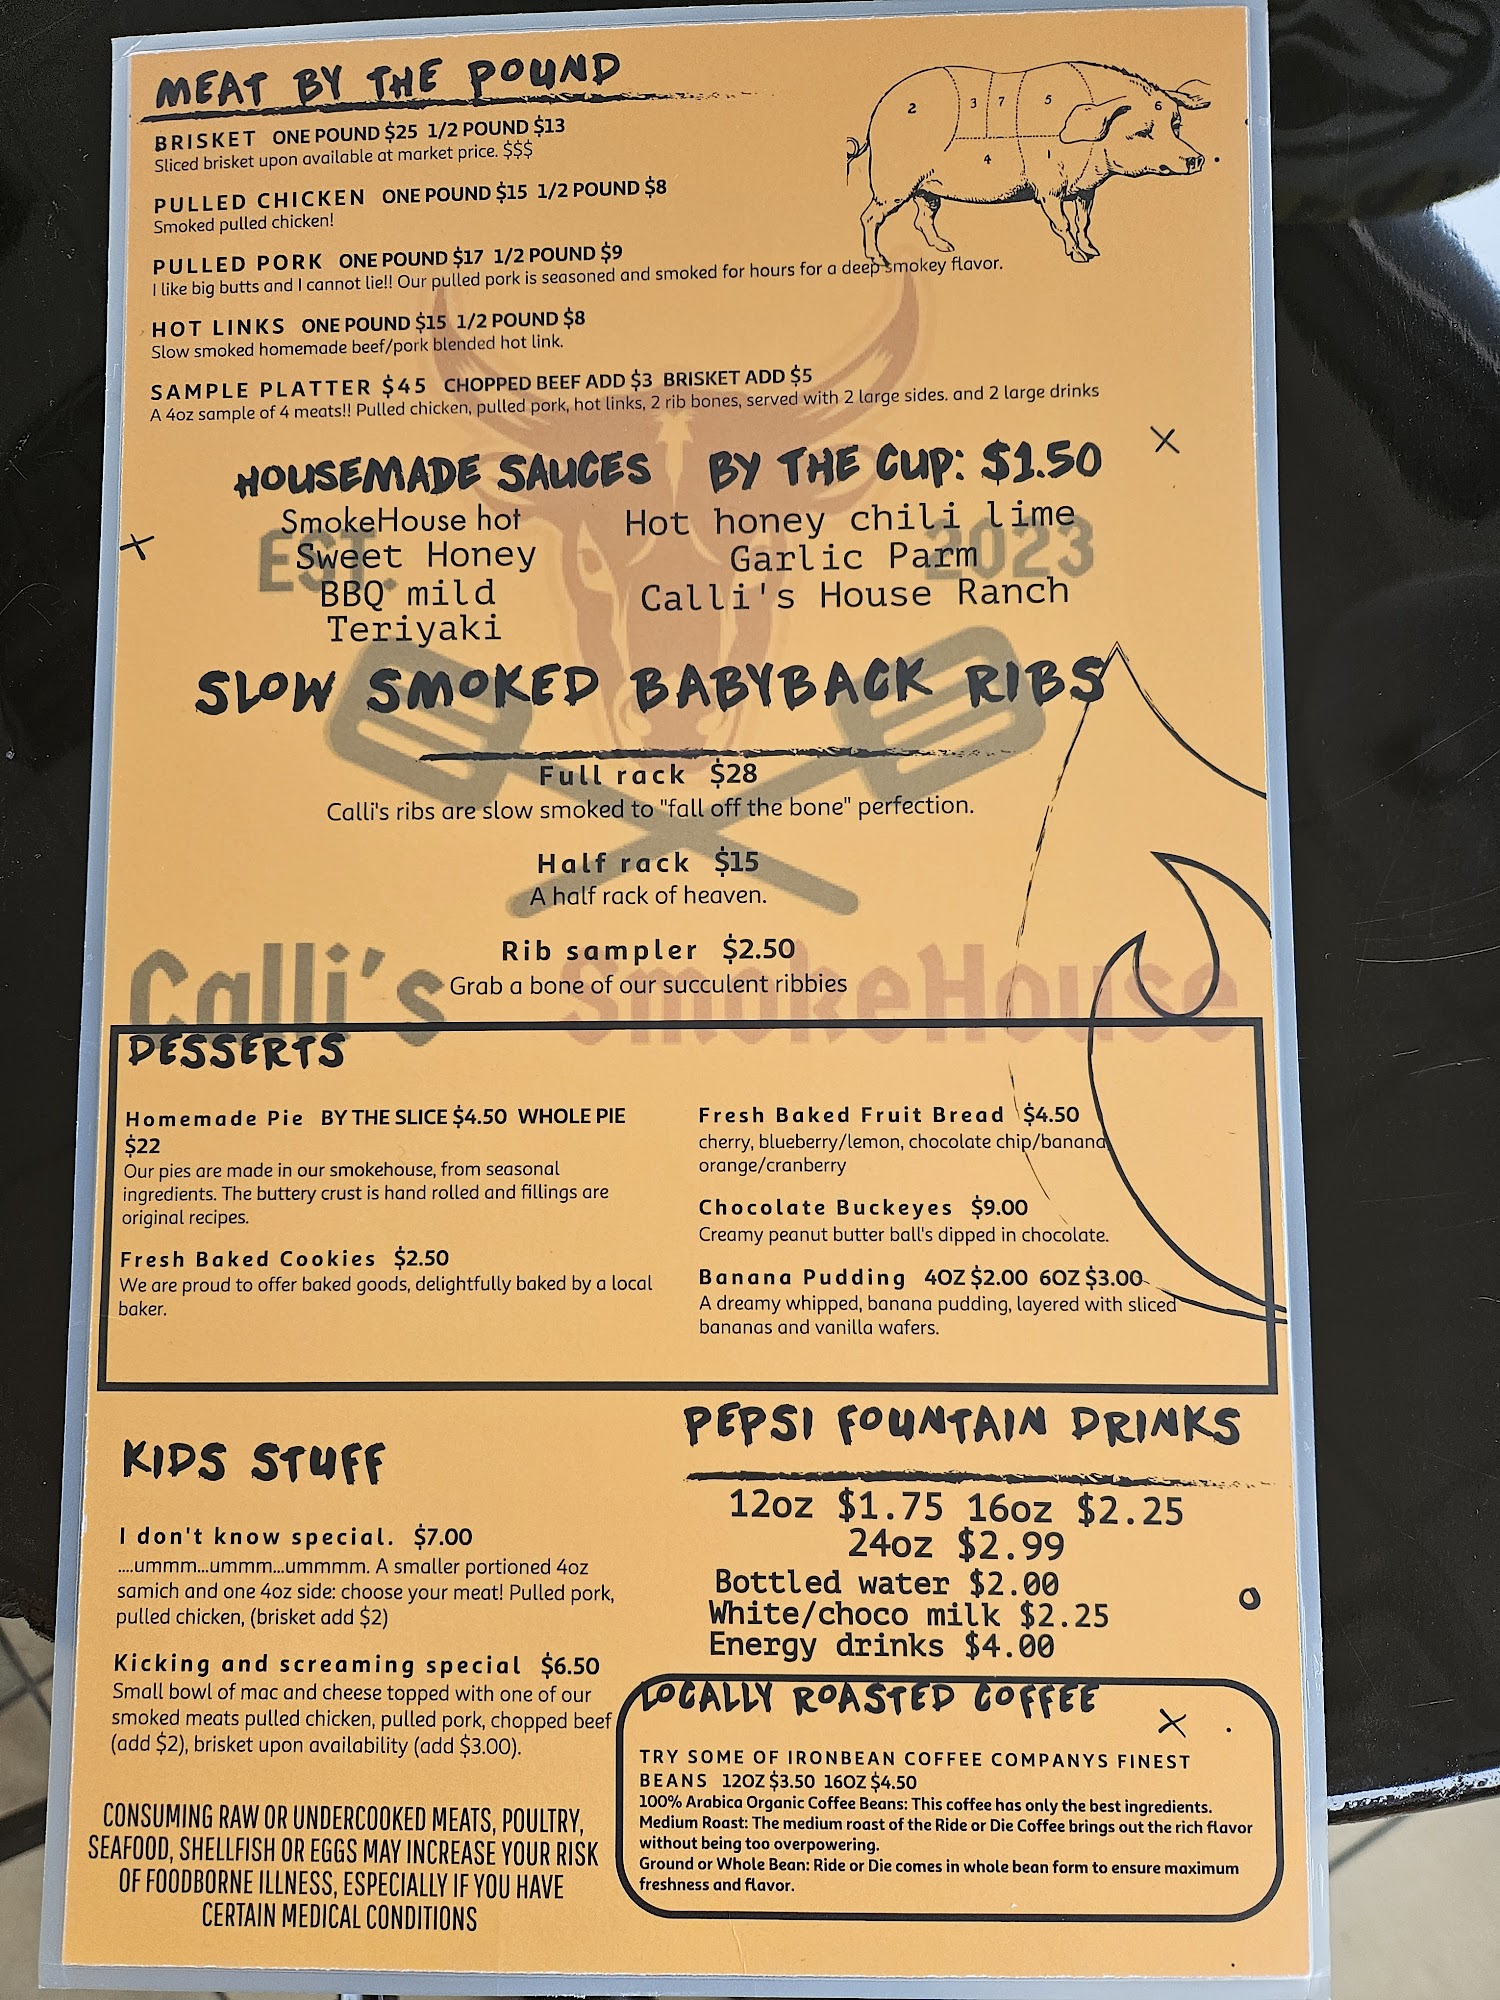 MEAT BY THE POUND
2 3 7 5 6 4 1
BRISKET ONE POUND $25 1/2 POUND $13
Sliced brisket upon available at market price. $$$
PULLED CHICKEN ONE POUND $15 1/2 POUND $8
Smoked pulled chicken!
PULLED PORK ONE POUND $17 1/2 POUND $9
I like big butts and I cannot lie!! Our pulled pork is seasoned and smoked for hours for a deep smokey flavor.
HOT LINKS ONE POUND $15 1/2 POUND $8
Slow smoked homemade beef/pork blended hot link.
SAMPLE PLATTER $45 CHOPPED BEEF ADD $3 BRISKET ADD $5
A 4oz sample of 4 meats!! Pulled chicken, pulled pork, hot links, 2 rib bones, served with 2 large sides. and 2 large drinks
HOUSEMADE SAUCES BY THE CUP: $1.50
SmokeHouse hot
Sweet Honey
BBQ mild
Teriyaki
Hot honey chili lime
Garlic Parm
Calli's House Ranch
EST. 2023
SLOW SMOKED BABYBACK RIBS
Full rack $28
Calli's ribs are slow smoked to "fall off the bone" perfection.
Half rack $15
A half rack of heaven.
Rib sampler $2.50
Grab a bone of our succulent ribbies
Calli's SmokeHouse
DESSERTS
Homemade Pie BY THE SLICE $4.50 WHOLE PIE
$22
Our pies are made in our smokehouse, from seasonal
ingredients. The buttery crust is hand rolled and fillings are
original recipes.
Fresh Baked Cookies $2.50
We are proud to offer baked goods, delightfully baked by a local
baker.
Fresh Baked Fruit Bread $4.50
cherry, blueberry/lemon, chocolate chip/banana,
orange/cranberry
Chocolate Buckeyes $9.00
Creamy peanut butter ball's dipped in chocolate.
Banana Pudding 4OZ $2.00 6OZ $3.00
A dreamy whipped, banana pudding, layered with sliced
bananas and vanilla wafers.
KIDS STUFF
I don't know special. $7.00
....ummm...ummm...ummmm. A smaller portioned 4oz
samich and one 4oz side: choose your meat! Pulled pork,
pulled chicken, (brisket add $2)
Kicking and screaming special $6.50
Small bowl of mac and cheese topped with one of our
smoked meats pulled chicken, pulled pork, chopped beef
(add $2), brisket upon availability (add $3.00).
CONSUMING RAW OR UNDERCOOKED MEATS, POULTRY,
SEAFOOD, SHELLFISH OR EGGS MAY INCREASE YOUR RISK
OF FOODBORNE ILLNESS, ESPECIALLY IF YOU HAVE
CERTAIN MEDICAL CONDITIONS
PEPSI FOUNTAIN DRINKS
12oz $1.75 16oz $2.25
24oz $2.99
Bottled water $2.00
White/choco milk $2.25
Energy drinks $4.00
LOCALLY ROASTED COFFEE
TRY SOME OF IRONBEAN COFFEE COMPANYS FINEST
BEANS 12OZ $3.50 16OZ $4.50
100% Arabica Organic Coffee Beans: This coffee has only the best ingredients.
Medium Roast: The medium roast of the Ride or Die Coffee brings out the rich flavor
without being too overpowering.
Ground or Whole Bean: Ride or Die comes in whole bean form to ensure maximum
freshness and flavor.